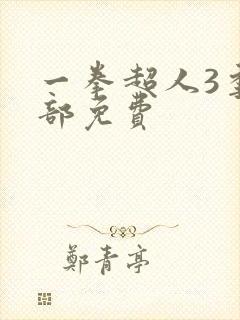 一拳超人3季全
部免费
鄭青亭